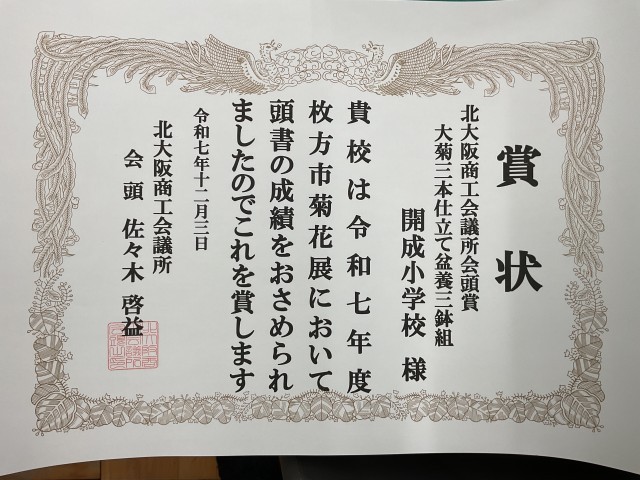 賞状
北大阪商工会議所会頭賞
大菊三本仕立て盆養三鉢組
開成小学校 様
貴校は令和七年度
枚方市菊花展において
頭書の成績をおさめられ
ましたのでこれを賞します
令和七年十二月三日
北大阪商工会議所
会頭 佐々木 啓益